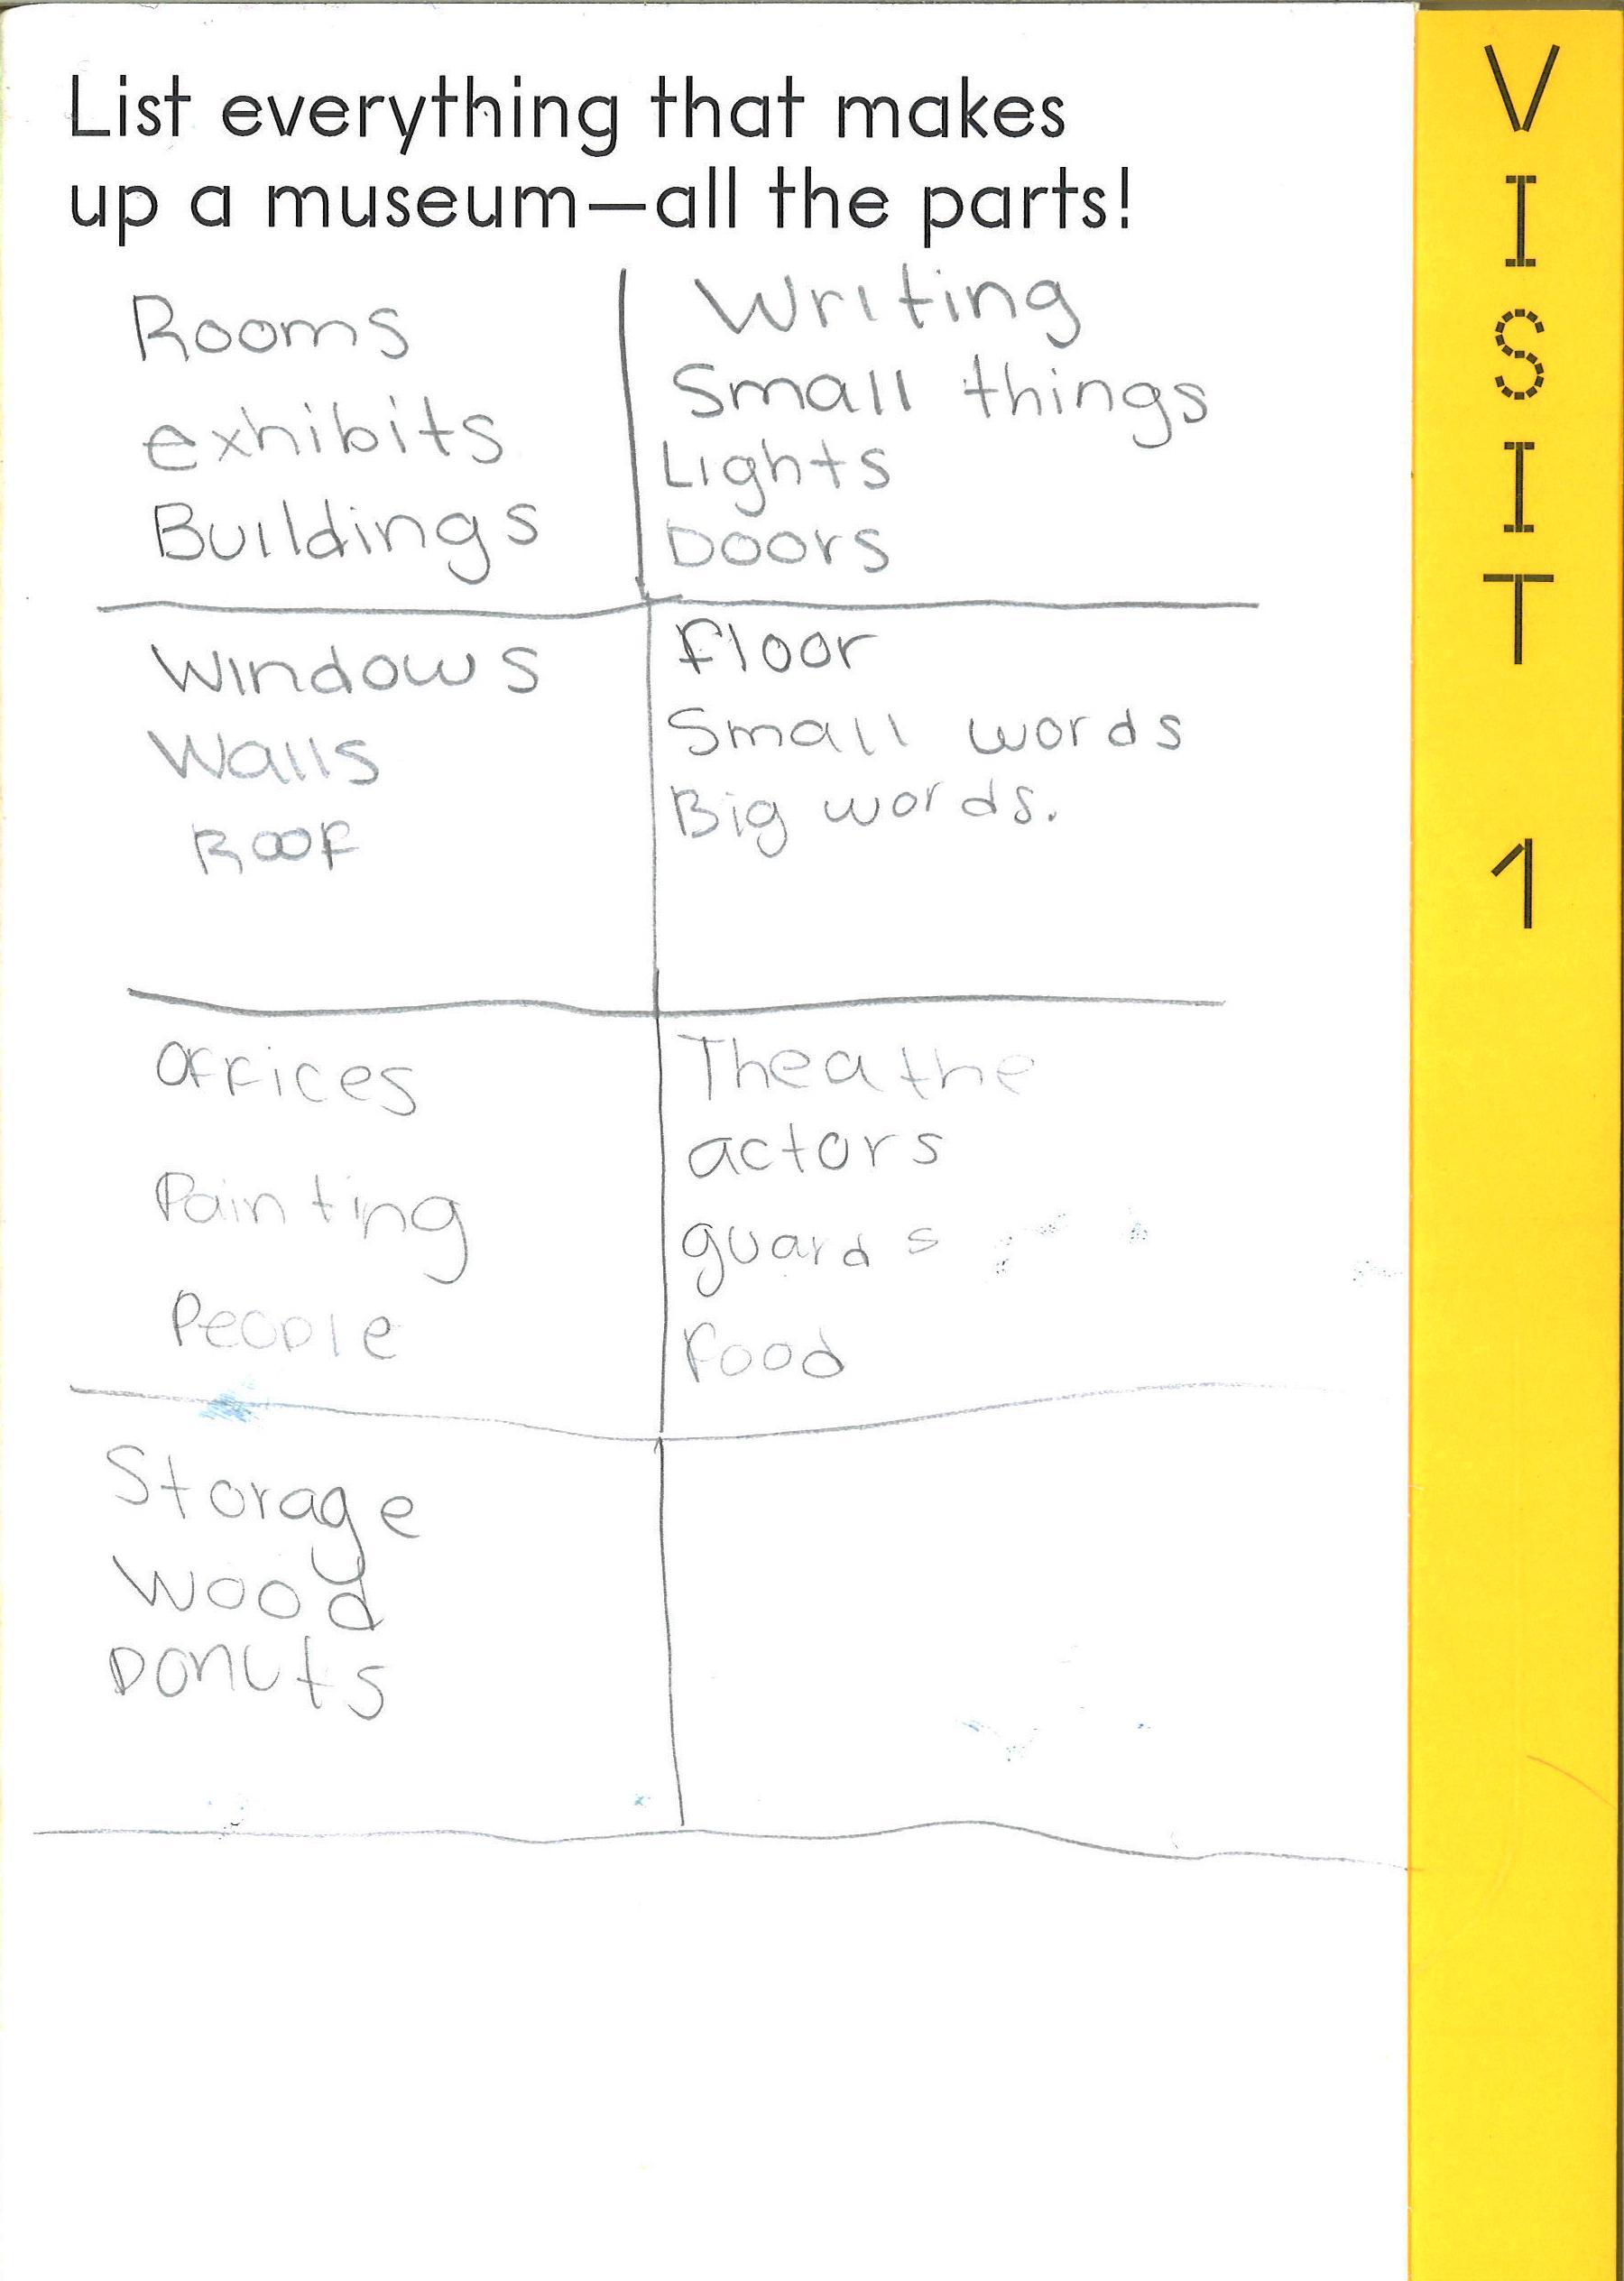 List everything that makes
up a museum—all the parts!
Rooms
exhibits
Buildings
Writing
Small things
Lights
Doors
Windows
Walls
Roof
Floor
Small words
Big words.
Offices
Painting
People
Theathe
actors
guards
Food
Storage
Wood
Donuts
VISIT 1